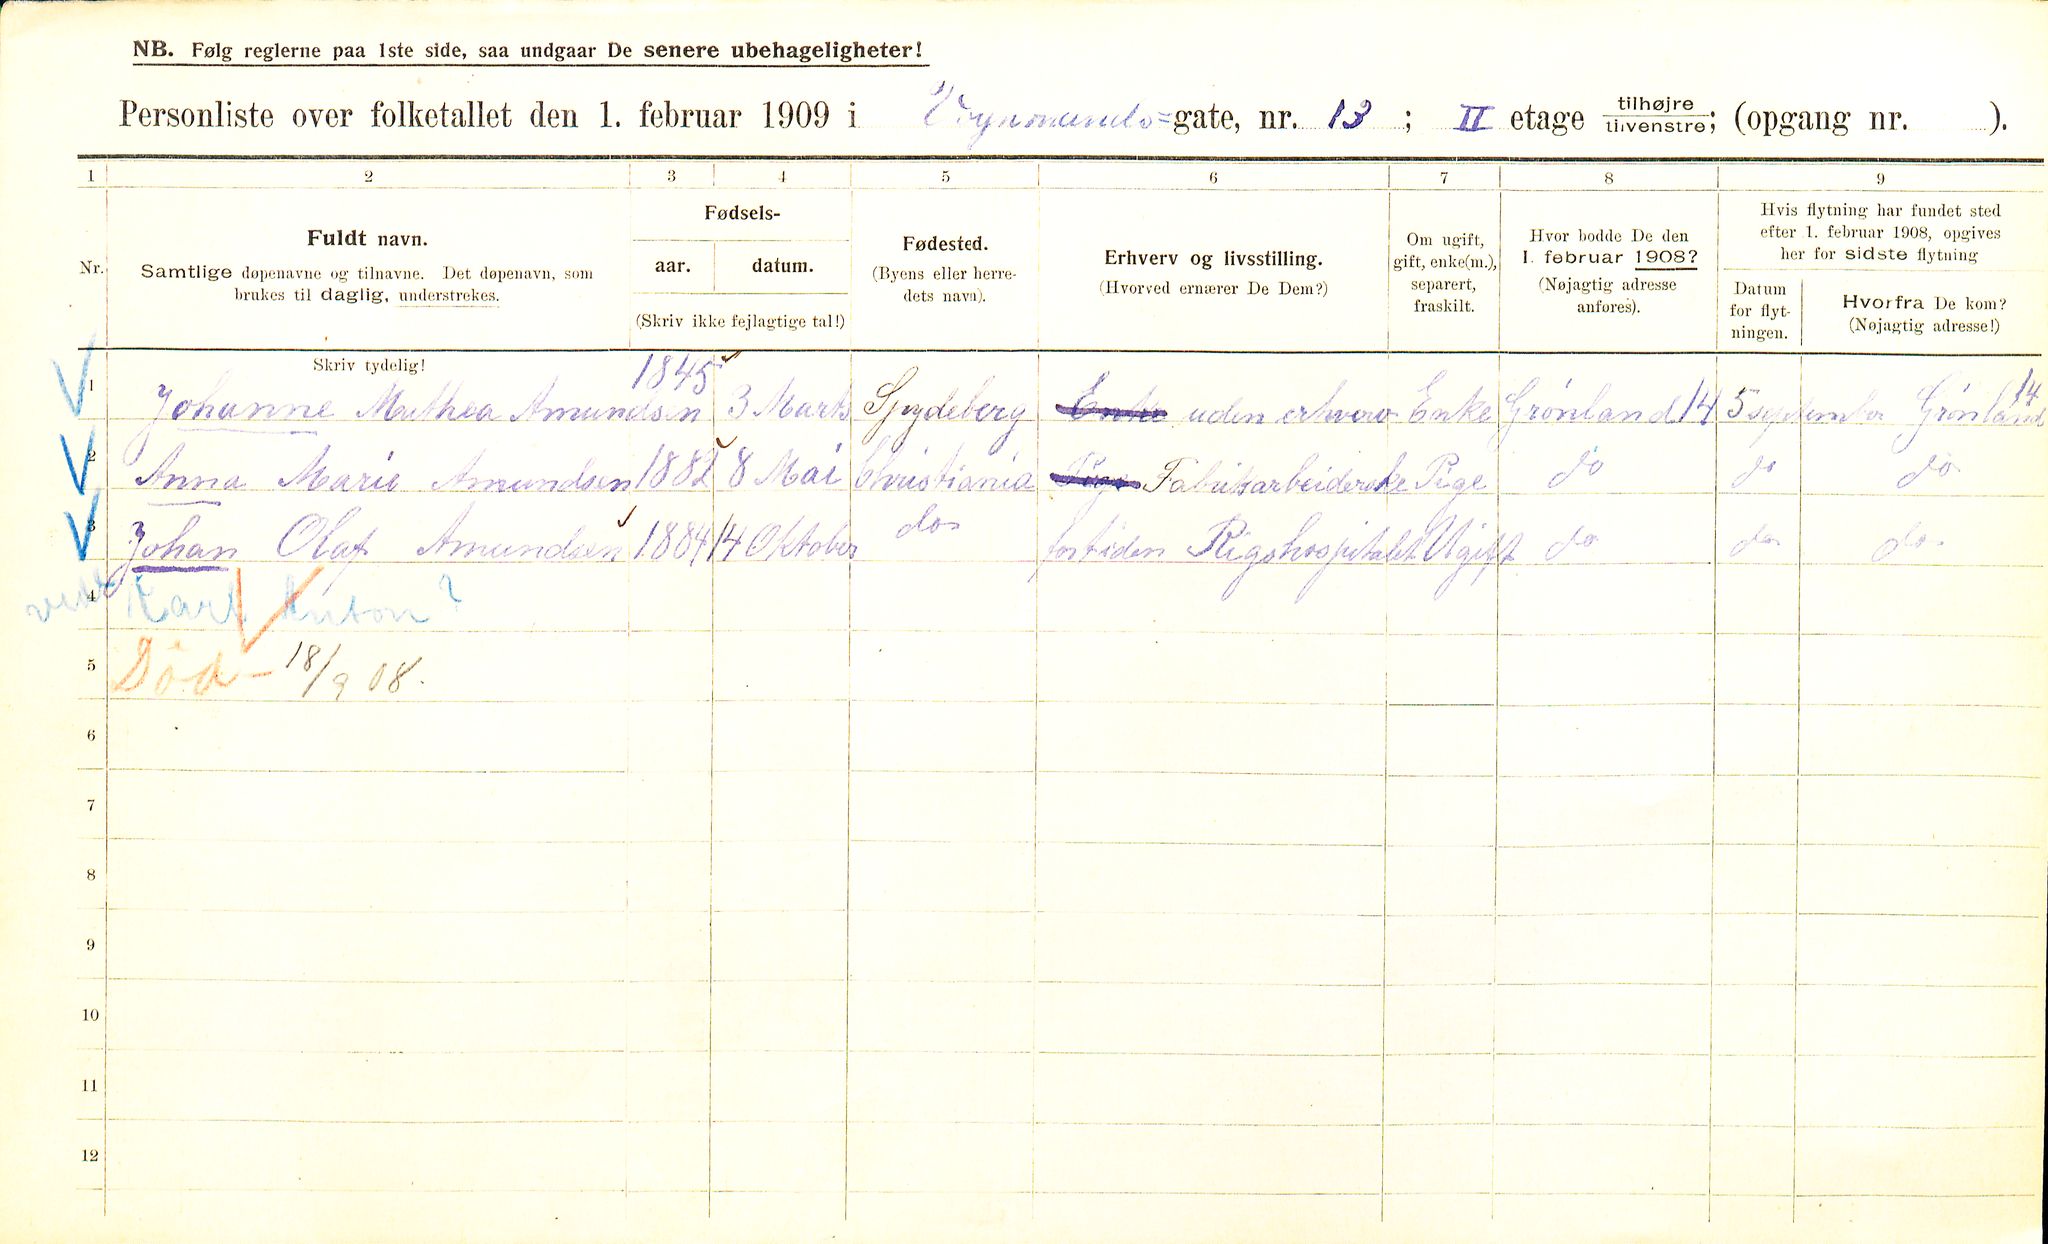 NB. Følg reglerne paa 1ste side, saa undgaar De senere ubehageligheter!
Personliste over folketallet den 1. februar 1909 i Vognmands=gate, nr. 13; II etage tilhøjre / tilvenstre; (opgang nr. ).
1 2 3 4 5 6 7 8 9
Nr.
Fuldt navn.
Samtlige døpenavne og tilnavne. Det døpenavn, som
brukes til daglig, understrekes.
Skriv tydelig!
Fødsels-
aar. datum.
(Skriv ikke fejlagtige tal!)
Fødested.
(Byens eller herre-
dets navn).
Erhverv og livsstilling.
(Hvorved ernærer De Dem?)
Om ugift,
gift, enke(m.),
separert,
fraskilt.
Hvor bodde De den
1. februar 1908?
(Nøjagtig adresse
anføres).
Hvis flytning har fundet sted
efter 1. februar 1908, opgives
her for sidste flytning
Datum
for flyt-
ningen.
Hvorfra De kom?
(Nøjagtig adresse!)
1 Johanne Mathea Amundsen 1845 3 Marts Spydeberg Enke uden erhverv Enke Grønland 14 5 september Grønland 14
2 Anna Marie Amundsen 1882 8 Mai Christiania Pige Fabriksarbeiderske Pige do do do
3 Johan Olaf Amundsen 1884 14 Oktober do fortiden Rigshospitalet Ugift do do do
4 Karl Anton?
5 Død - 18/9 08.
6
7
8
9
10
11
12